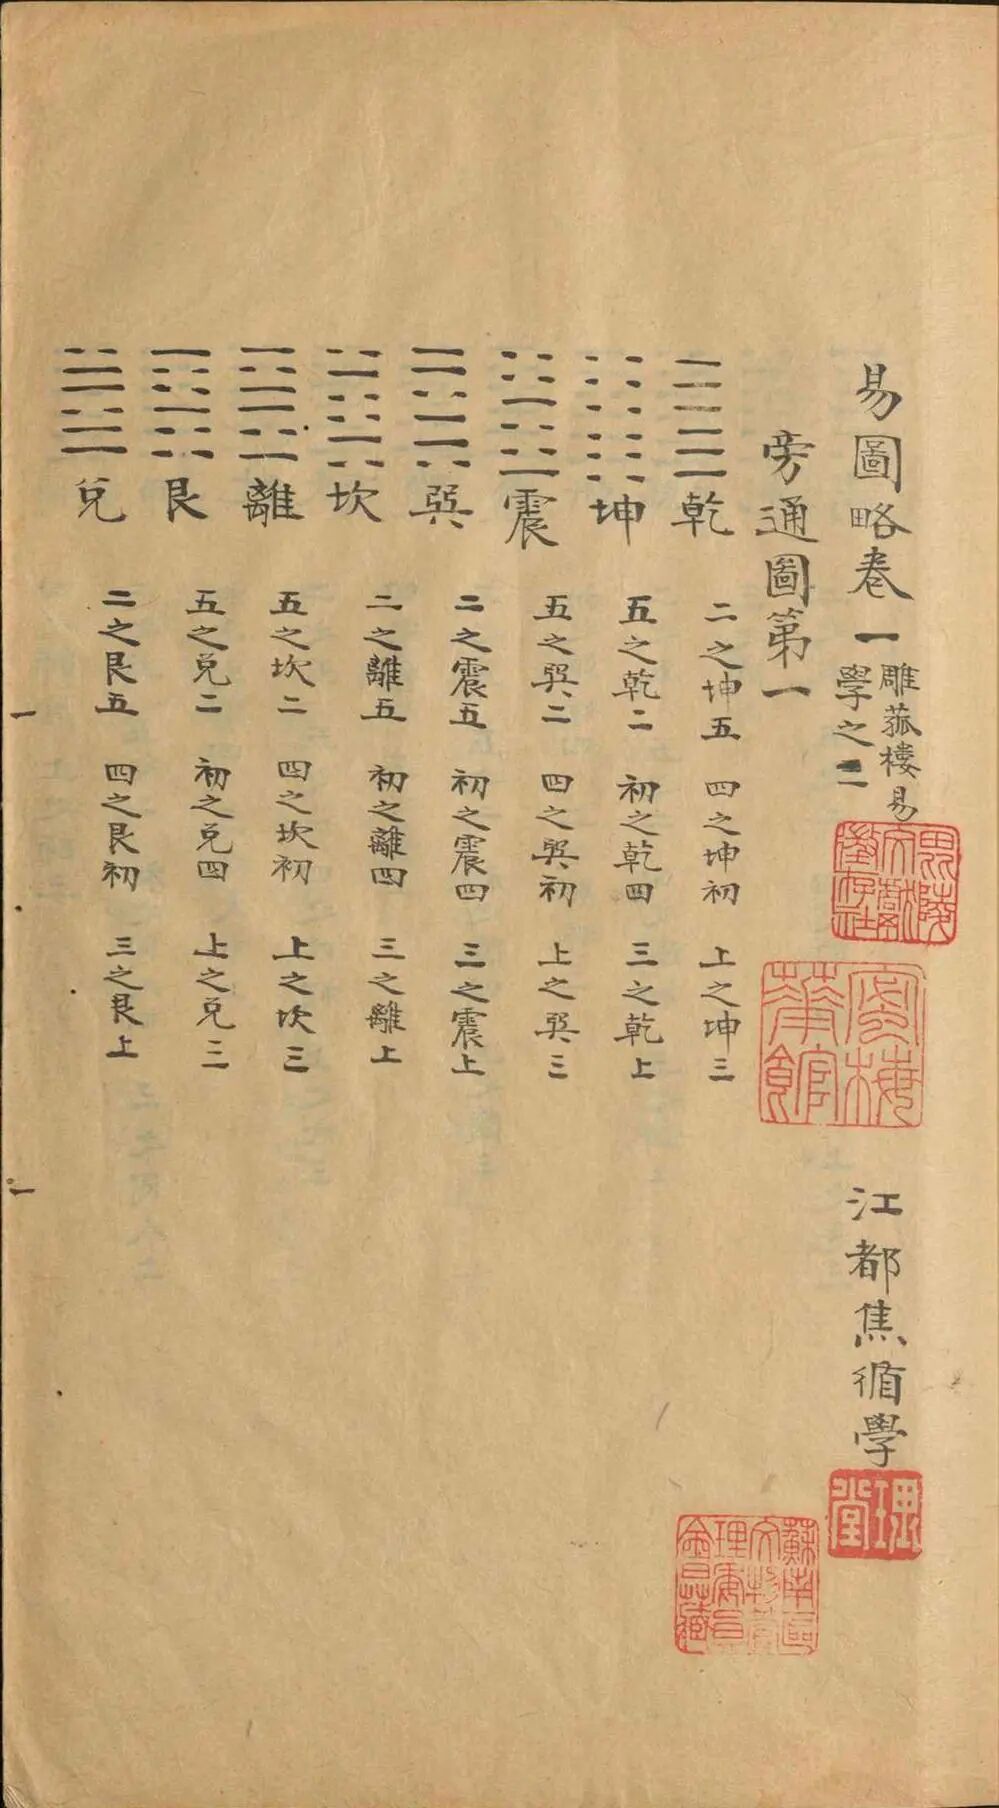 易圖略卷一 雕菰樓易學之二
江都焦循學
旁通圖第一
乾 二之坤五 四之坤初 上之坤三
坤 五之乾二 初之乾四 三之乾上
震 五之巽二 四之巽初 上之巽三
巽 二之震五 初之震四 三之震上
坎 二之離五 初之離四 三之離上
離 五之坎二 四之坎初 上之坎三
艮 五之兌二 初之兌四 上之兌三
兌 二之艮五 四之艮初 三之艮上
毘陵文獻徵存社
寒梅華館
理堂
蘇南區文物管理委員會藏
一
一